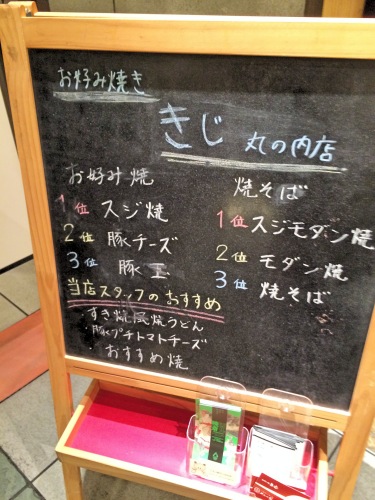 お好み焼き
きじ 丸の内店
お好み焼
1位 スジ焼
2位 豚チーズ
3位 豚玉
焼そば
1位 スジモダン焼
2位 モダン焼
3位 焼そば
当店スタッフのおすすめ
すき焼風焼うどん
豚プチトマトチーズ
おすすめ焼